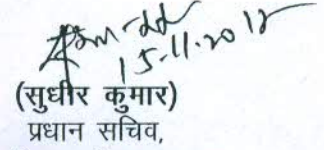 15.11.2012
(सुधीर कुमार)
प्रधान सचिव,